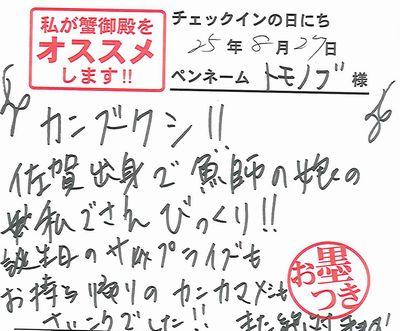 私が蟹御殿を
オススメ
します!!
チェックインの日にち
25年8月27日
ペンネーム トモノブ 様
カンズクシ!!
佐賀出身で魚師の娘の
私でさんびっくり!!
誕生日のサプライズも
お持ち帰りのカンカマメシも
お墨つき
でした!! また